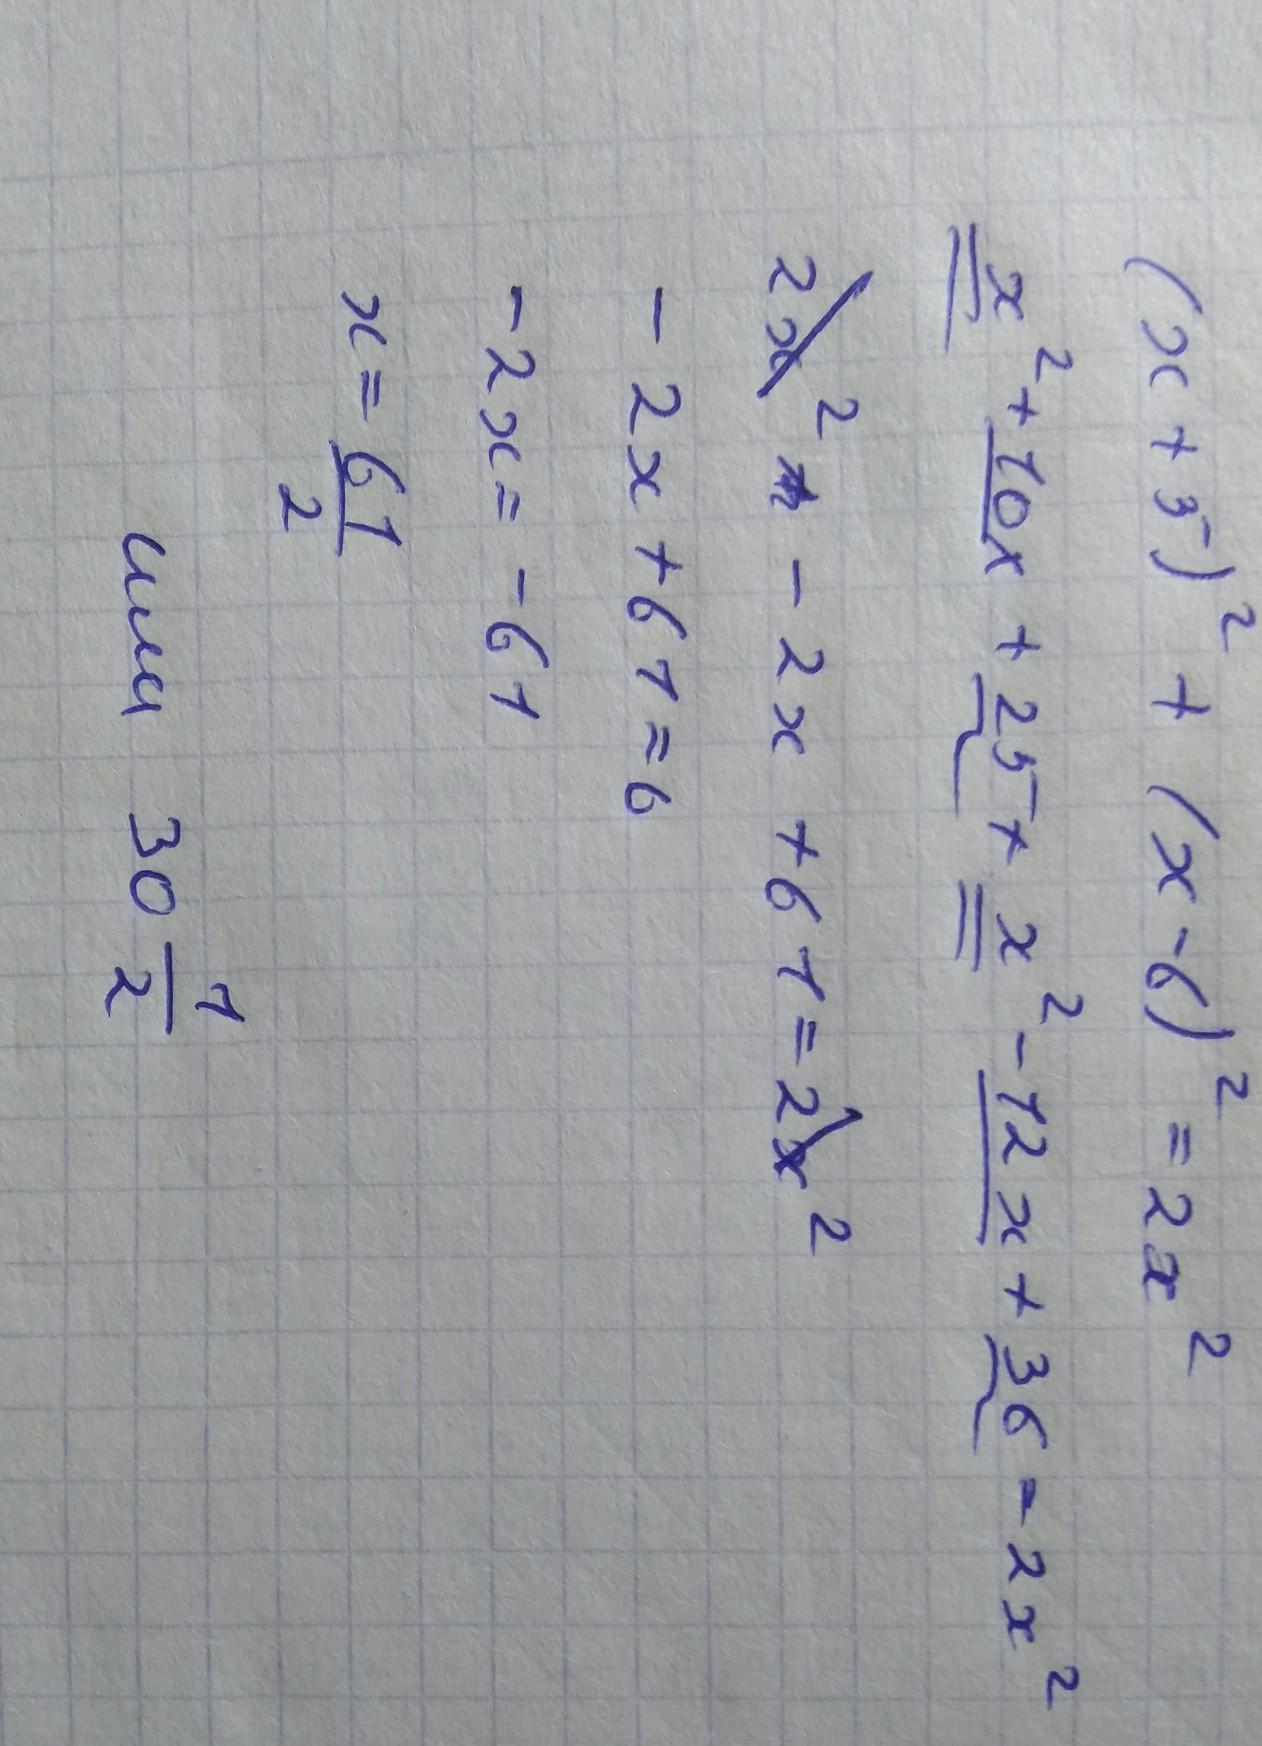 (x+5)² + (x-6)² = 2x²
x²+10x+25+x²-12x+36=2x²
2x² -2x+61=2x²
-2x+61=6
-2x=-61
x=61/2
или 30 1/2